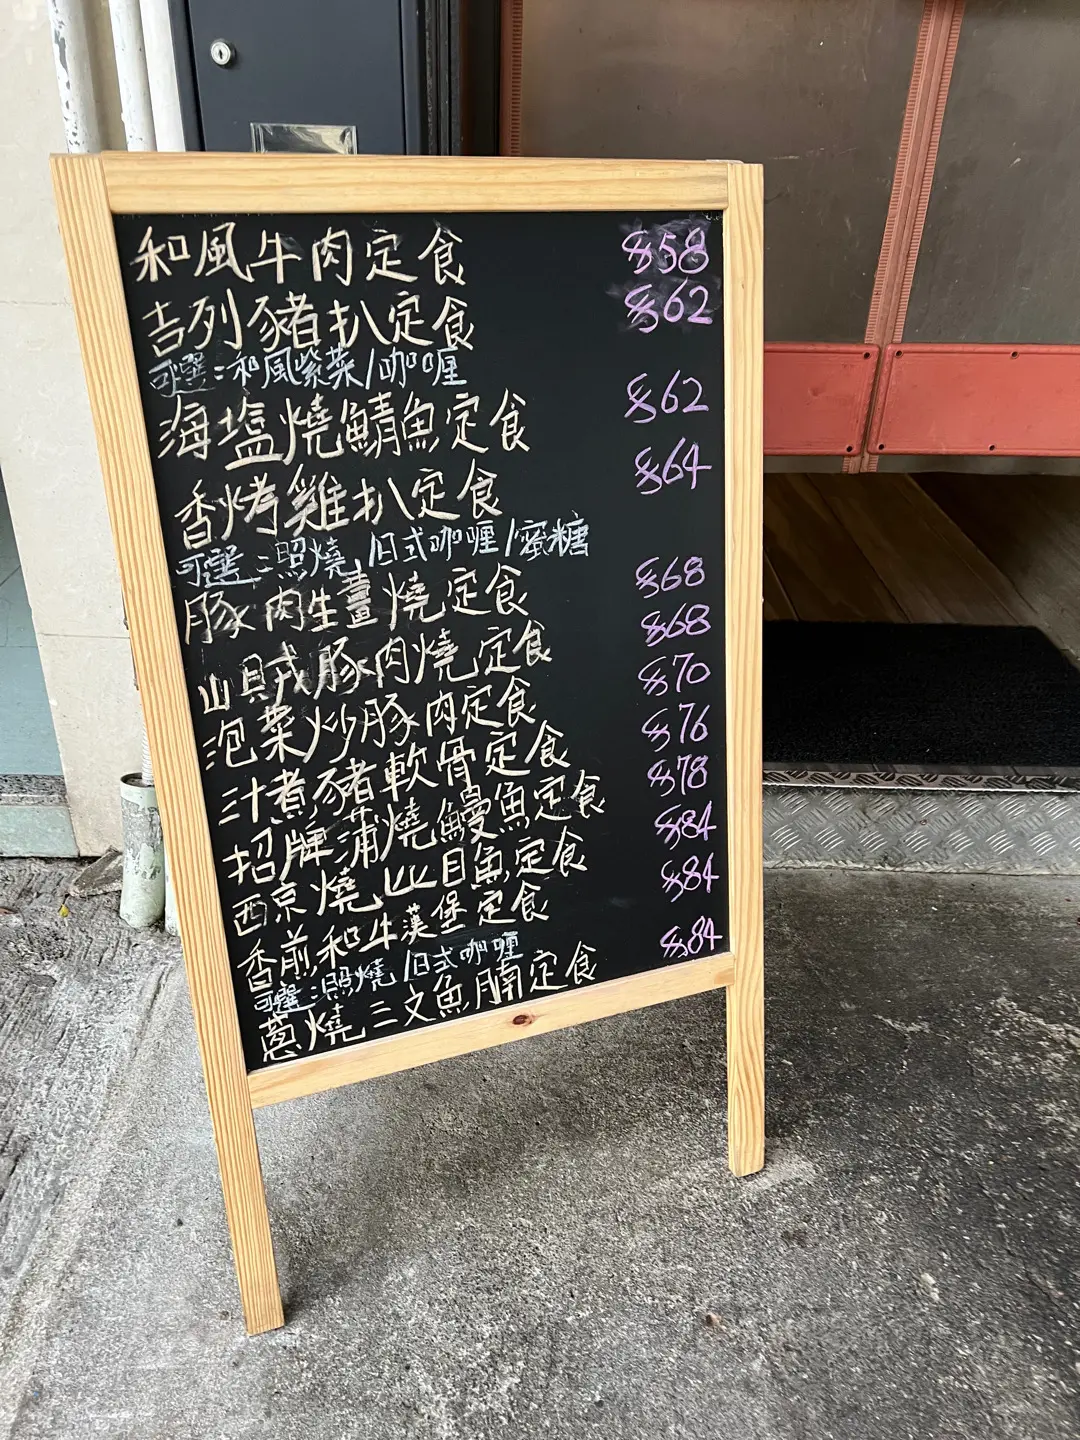 和風牛肉定食 $58
吉列豬扒定食 $62
可選:和風紫菜/咖喱
海塩燒鯖魚定食 $62
香烤雞扒定食 $64
可選:照燒/旧式咖喱/蜜糖
豚肉生薑燒定食 $68
山賊豚肉燒定食 $68
泡菜炒豚肉定食 $70
汁煮豬軟骨定食 $76
招牌蒲燒鰻魚定食 $78
西京燒比目魚定食 $84
香煎和牛漢堡定食 $84
可選:照燒/旧式咖喱
蔥燒三文魚腩定食 $84